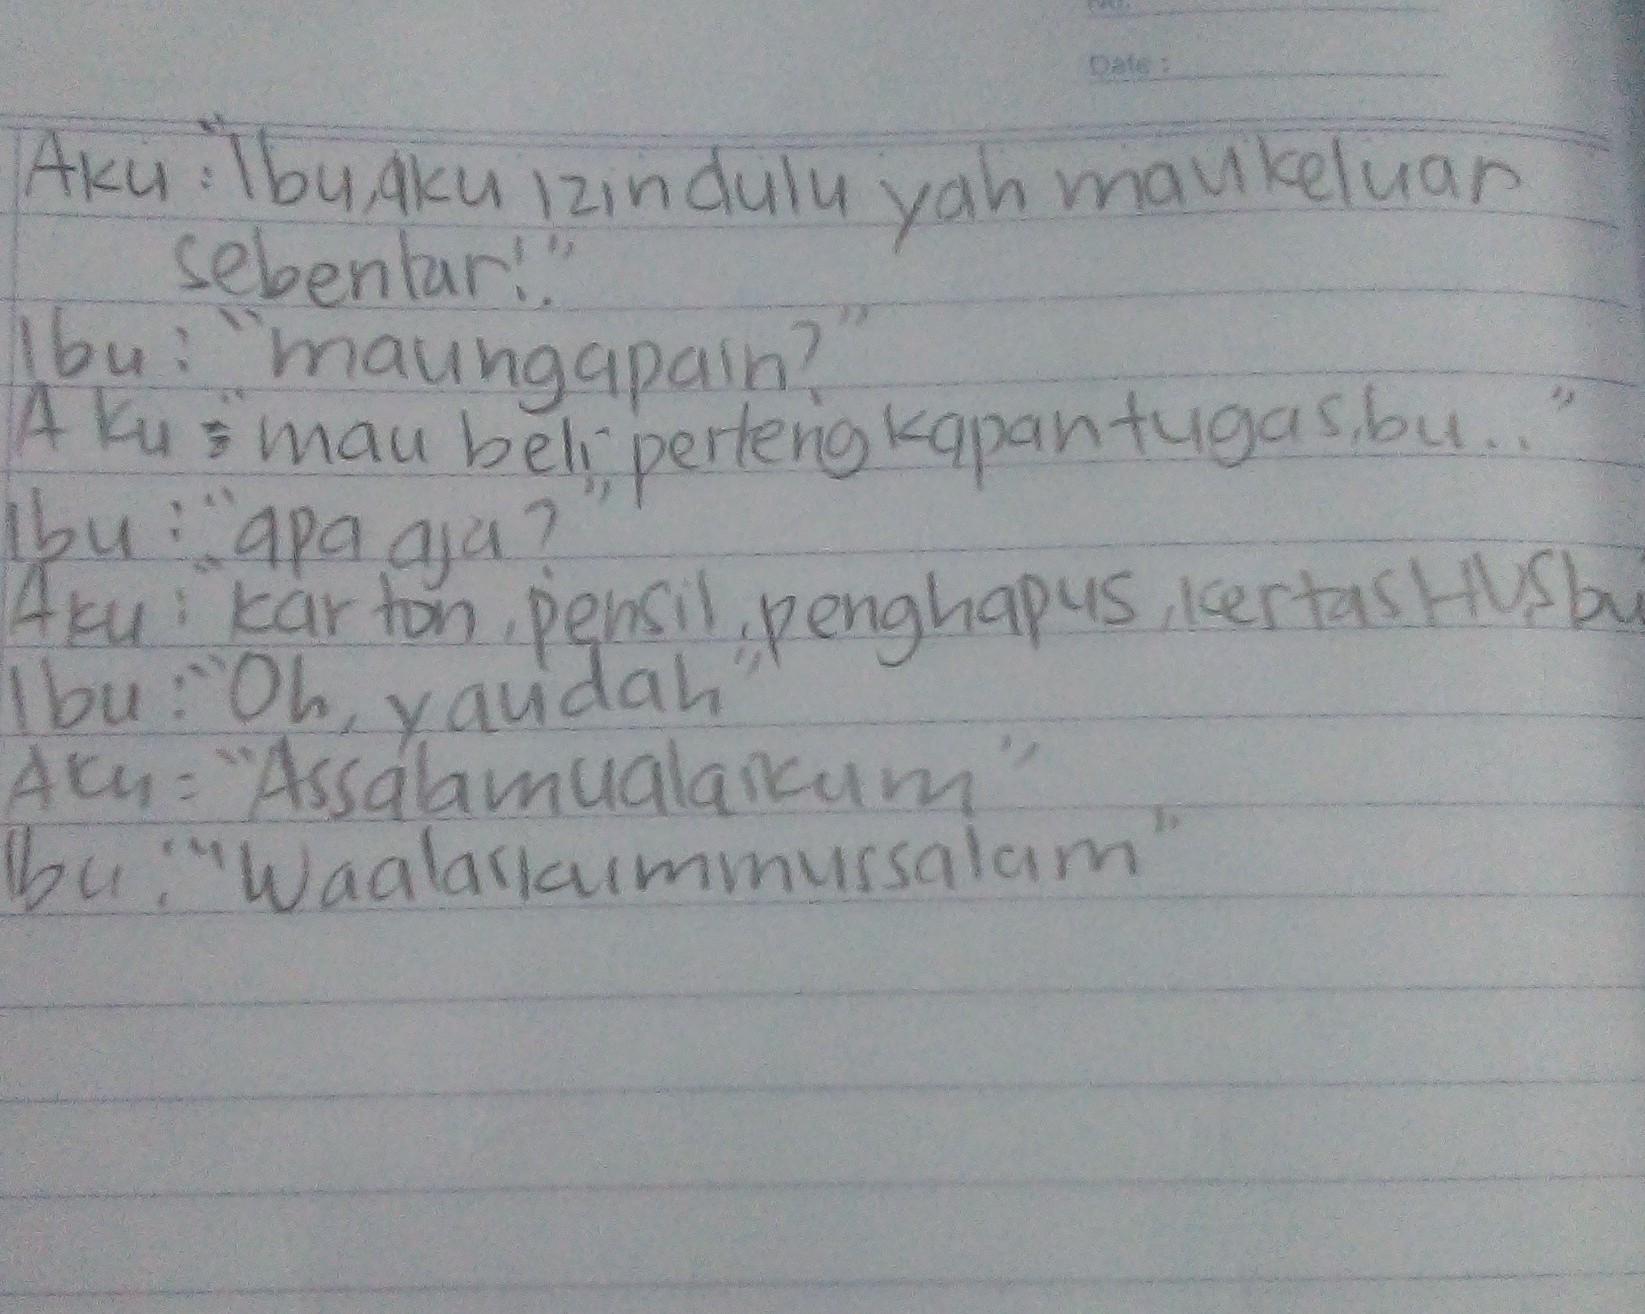 No.
Date :
Aku : "Ibu, aku izin dulu yah mau keluar
sebentar!."
Ibu : "mau ngapain?"
Aku : "mau beli perlengkapan tugas, bu..."
Ibu : "apa aja?"
Aku : "karton, pensil, penghapus, kertas HVS bu
Ibu : "Oh, yaudah"
Aku = "Assalamualaikum"
Ibu : "Waalaikummussalam"